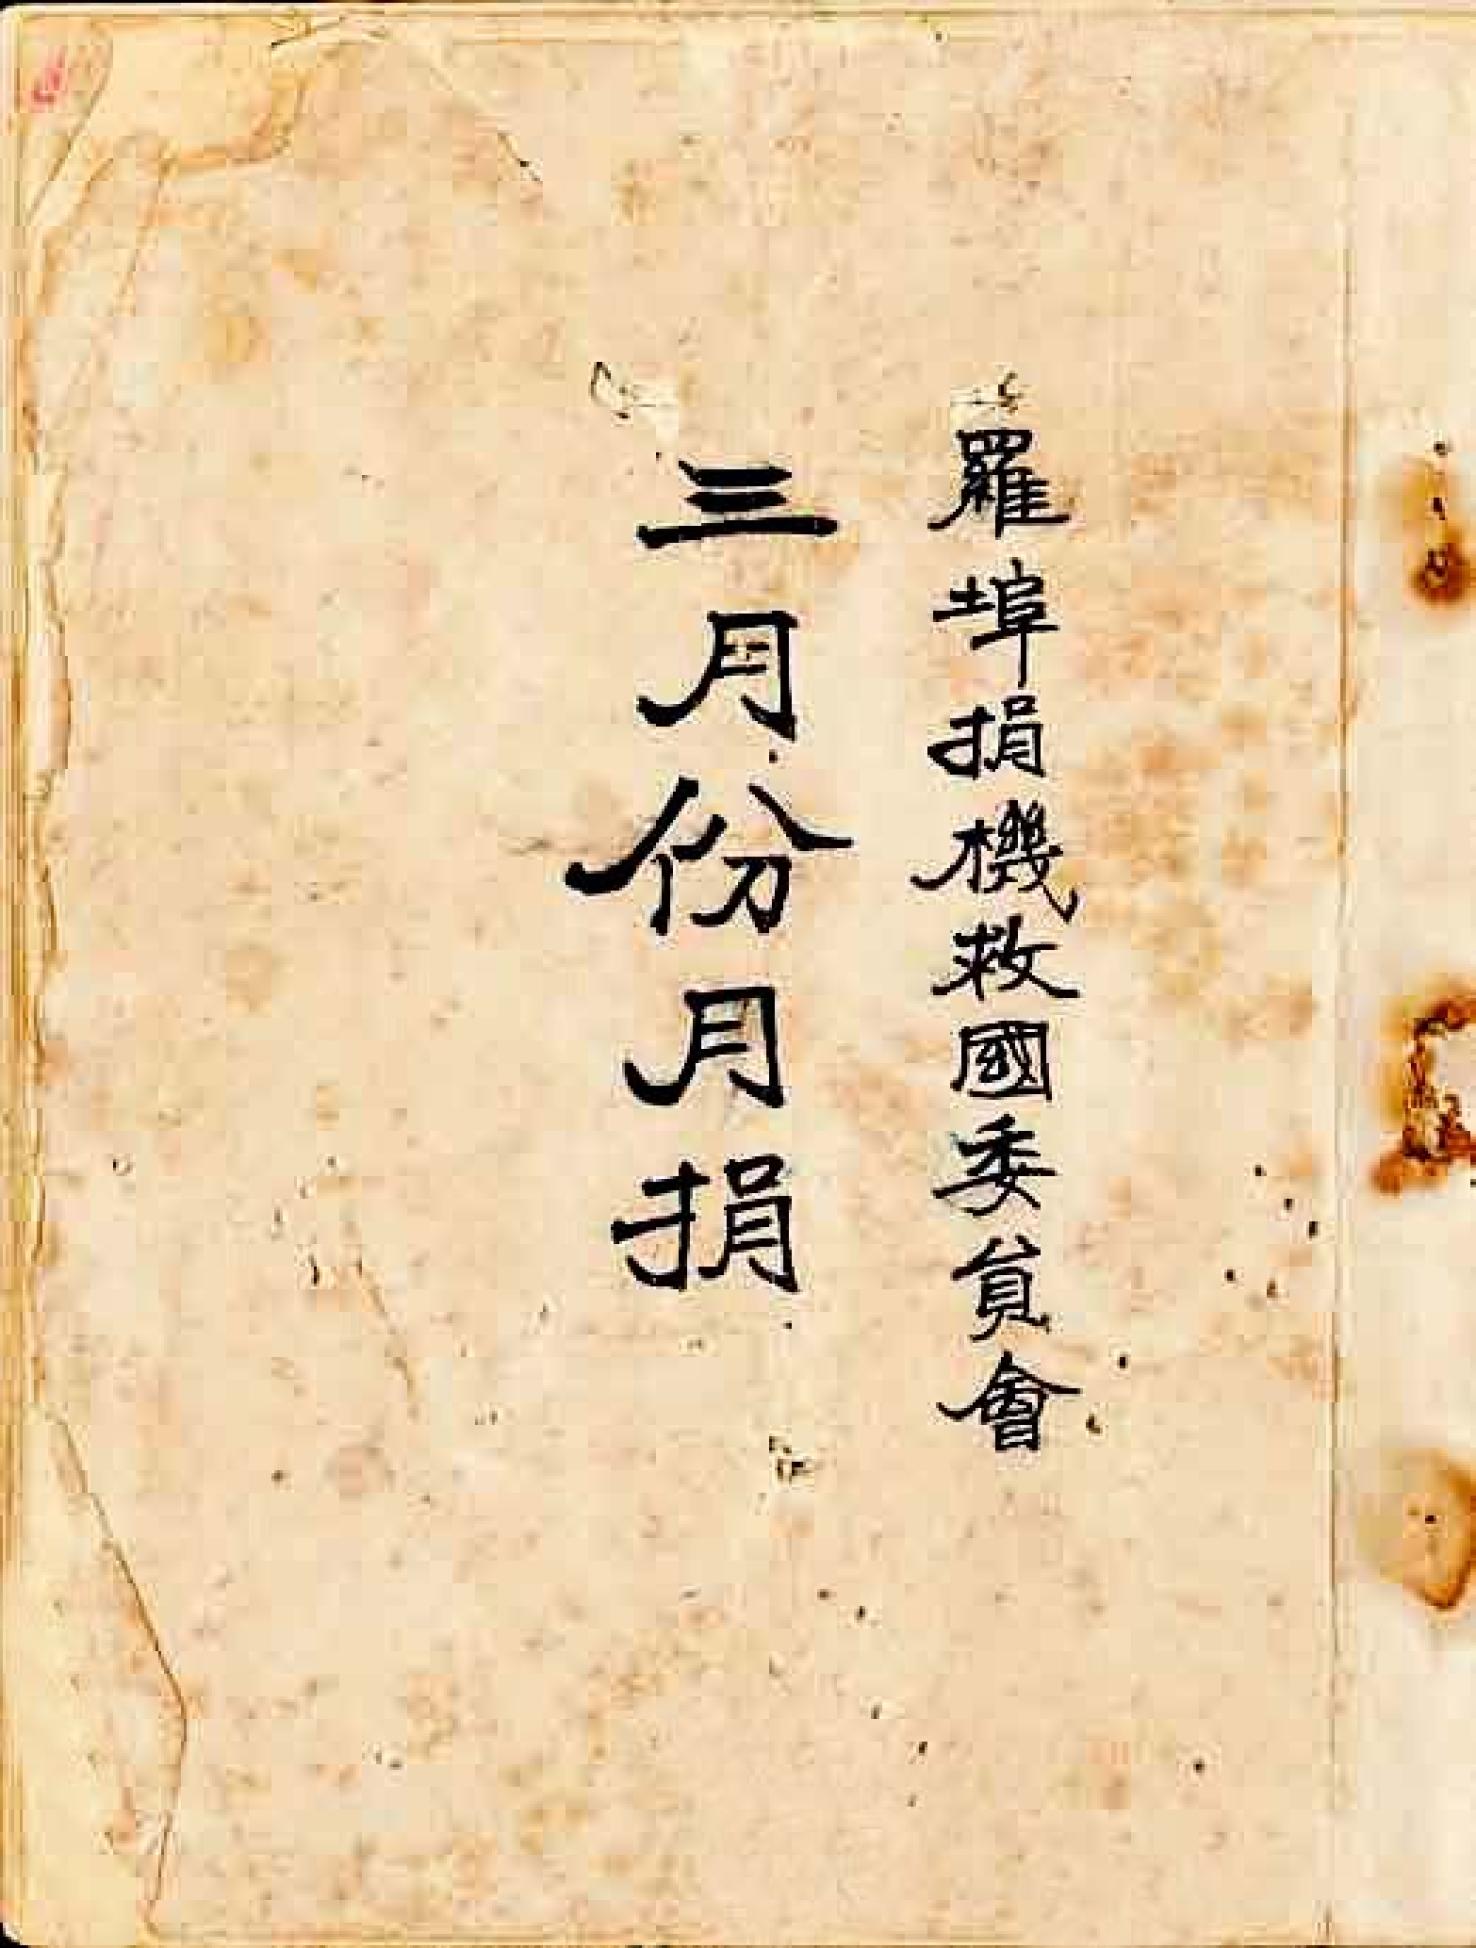 羅埠捐機救國委員會
三月份月捐